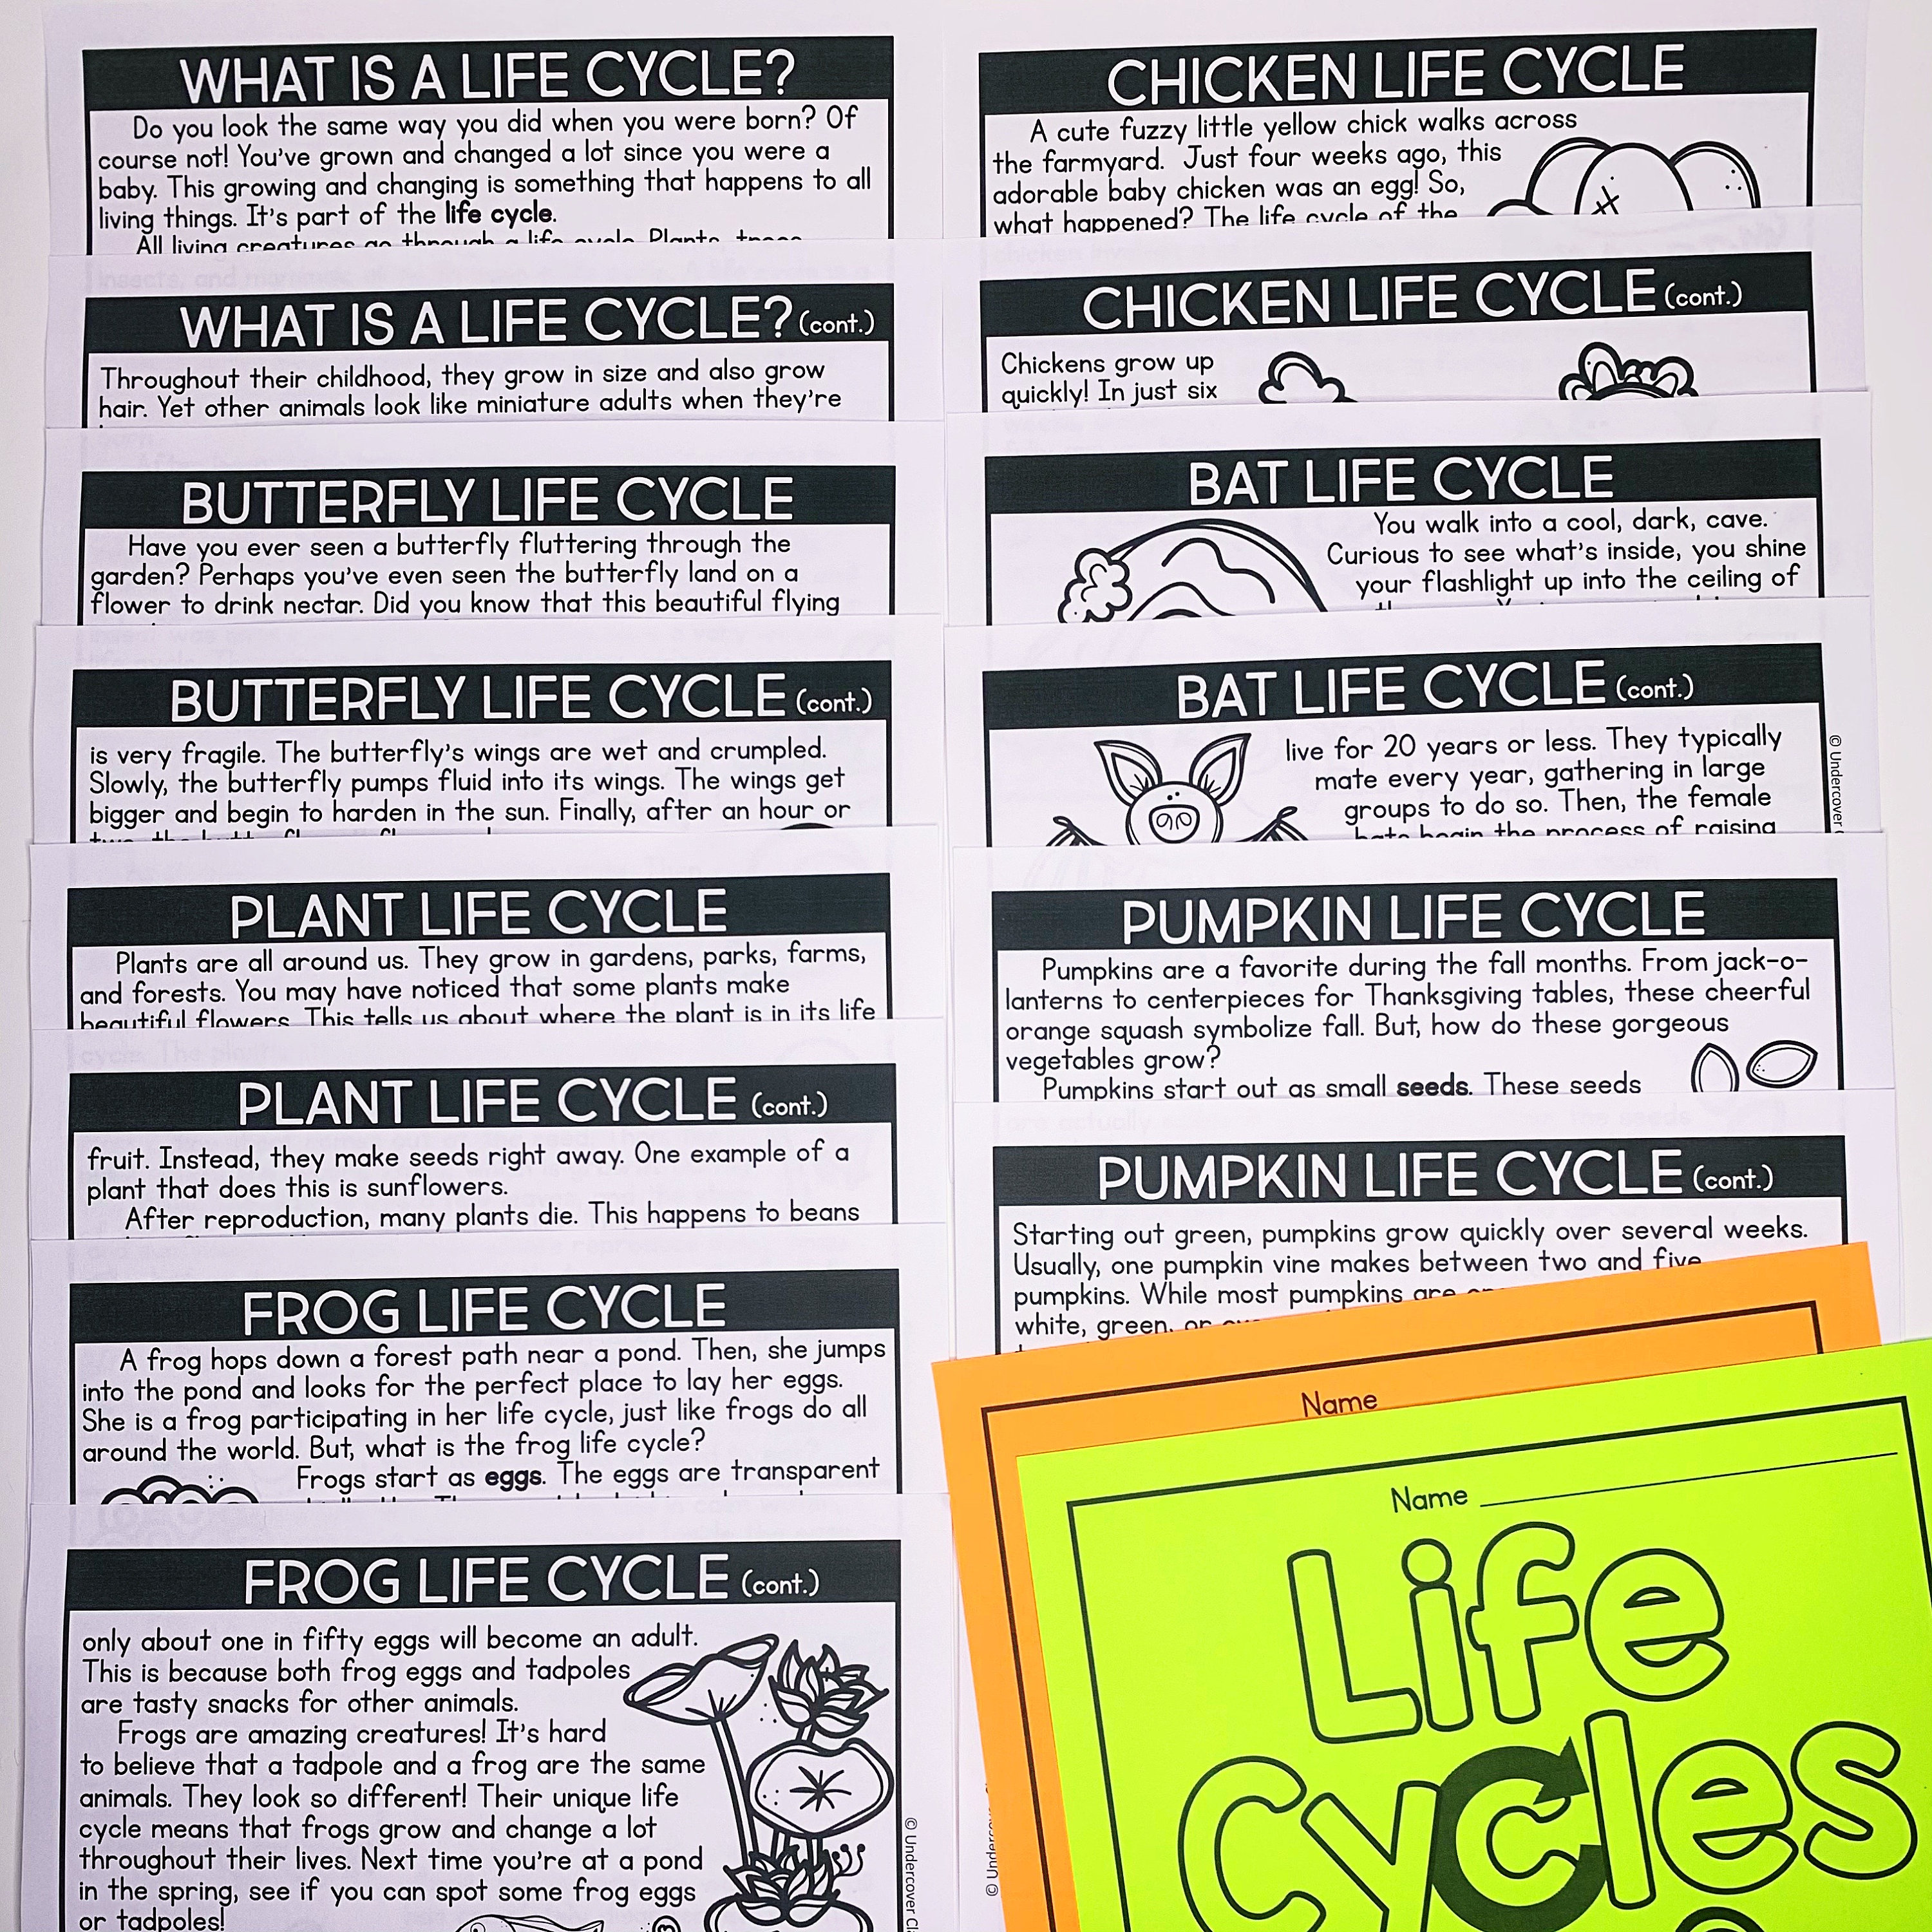 WHAT IS A LIFE CYCLE?
Do you look the same way you did when you were born? Of
course not! You've grown and changed a lot since you were a
baby. This growing and changing is something that happens to all
living things. It's part of the life cycle.
All living creatures go through a life cycle. Plants, trees,
WHAT IS A LIFE CYCLE? (cont.)
Throughout their childhood, they grow in size and also grow
hair. Yet other animals look like miniature adults when they're
BUTTERFLY LIFE CYCLE
Have you ever seen a butterfly fluttering through the
garden? Perhaps you've even seen the butterfly land on a
flower to drink nectar. Did you know that this beautiful flying
BUTTERFLY LIFE CYCLE (cont.)
is very fragile. The butterfly's wings are wet and crumpled.
Slowly, the butterfly pumps fluid into its wings. The wings get
bigger and begin to harden in the sun. Finally, after an hour or
PLANT LIFE CYCLE
Plants are all around us. They grow in gardens, parks, farms,
and forests. You may have noticed that some plants make
beautiful flowers. This tells us about where the plant is in its life
PLANT LIFE CYCLE (cont.)
fruit. Instead, they make seeds right away. One example of a
plant that does this is sunflowers.
After reproduction, many plants die. This happens to beans
FROG LIFE CYCLE
A frog hops down a forest path near a pond. Then, she jumps
into the pond and looks for the perfect place to lay her eggs.
She is a frog participating in her life cycle, just like frogs do all
around the world. But, what is the frog life cycle?
Frogs start as eggs. The eggs are transparent
FROG LIFE CYCLE (cont.)
only about one in fifty eggs will become an adult.
This is because both frog eggs and tadpoles
are tasty snacks for other animals.
Frogs are amazing creatures! It's hard
to believe that a tadpole and a frog are the same
animals. They look so different! Their unique life
cycle means that frogs grow and change a lot
throughout their lives. Next time you're at a pond
in the spring, see if you can spot some frog eggs
or tadpoles!
© Undercover
CHICKEN LIFE CYCLE
A cute fuzzy little yellow chick walks across
the farmyard. Just four weeks ago, this
adorable baby chicken was an egg! So,
what happened? The life cycle of the
CHICKEN LIFE CYCLE (cont.)
Chickens grow up
quickly! In just six
BAT LIFE CYCLE
You walk into a cool, dark, cave.
Curious to see what's inside, you shine
your flashlight up into the ceiling of
BAT LIFE CYCLE (cont.)
live for 20 years or less. They typically
mate every year, gathering in large
groups to do so. Then, the female
bats begin the process of raising
© Undercover
PUMPKIN LIFE CYCLE
Pumpkins are a favorite during the fall months. From jack-o-
lanterns to centerpieces for Thanksgiving tables, these cheerful
orange squash symbolize fall. But, how do these gorgeous
vegetables grow?
Pumpkins start out as small seeds. These seeds
PUMPKIN LIFE CYCLE (cont.)
Starting out green, pumpkins grow quickly over several weeks.
Usually, one pumpkin vine makes between two and five
pumpkins. While most pumpkins are
white, green, or
Name
Name
Life
Cycles